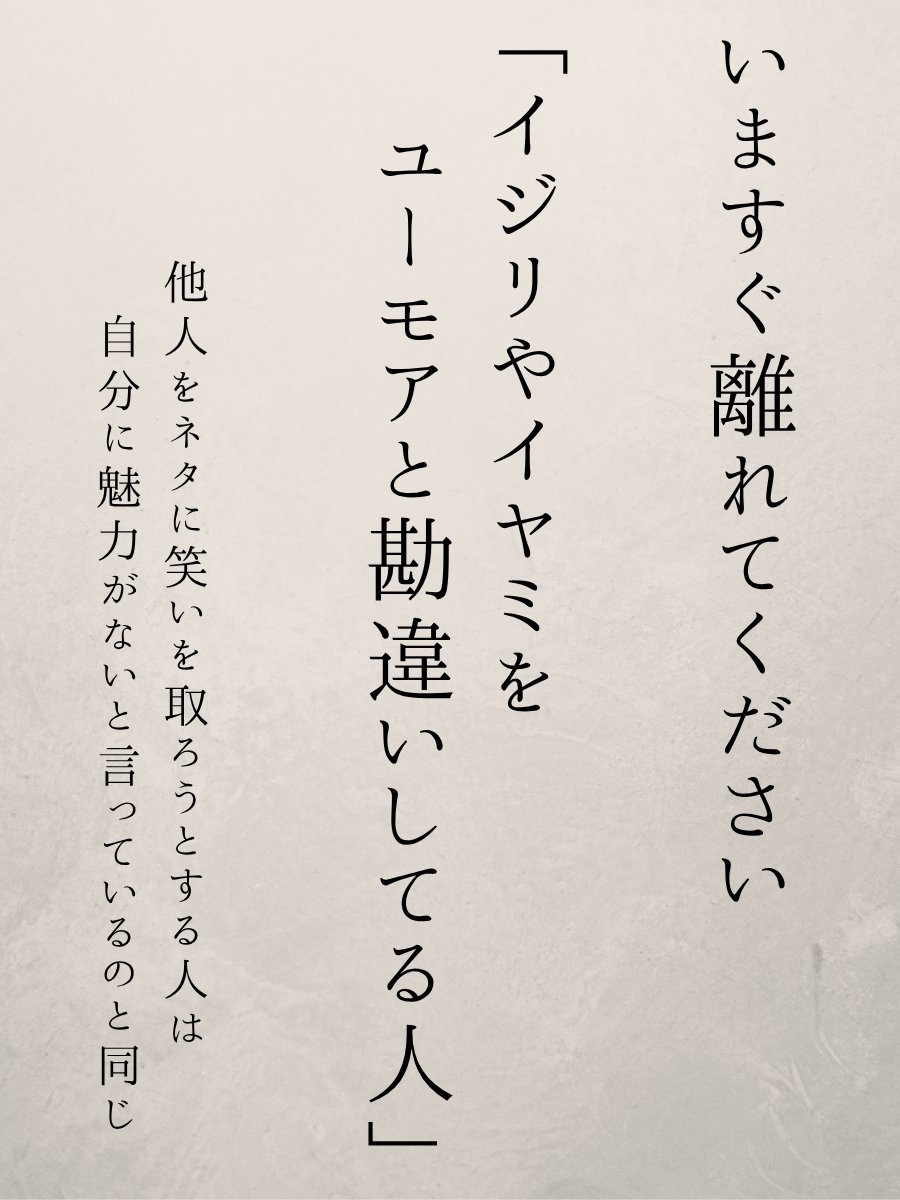 いますぐ離れてください
「イジリやイヤミを
ユーモアと勘違いしてる人」
他人をネタに笑いを取ろうとする人は
自分に魅力がないと言っているのと同じ